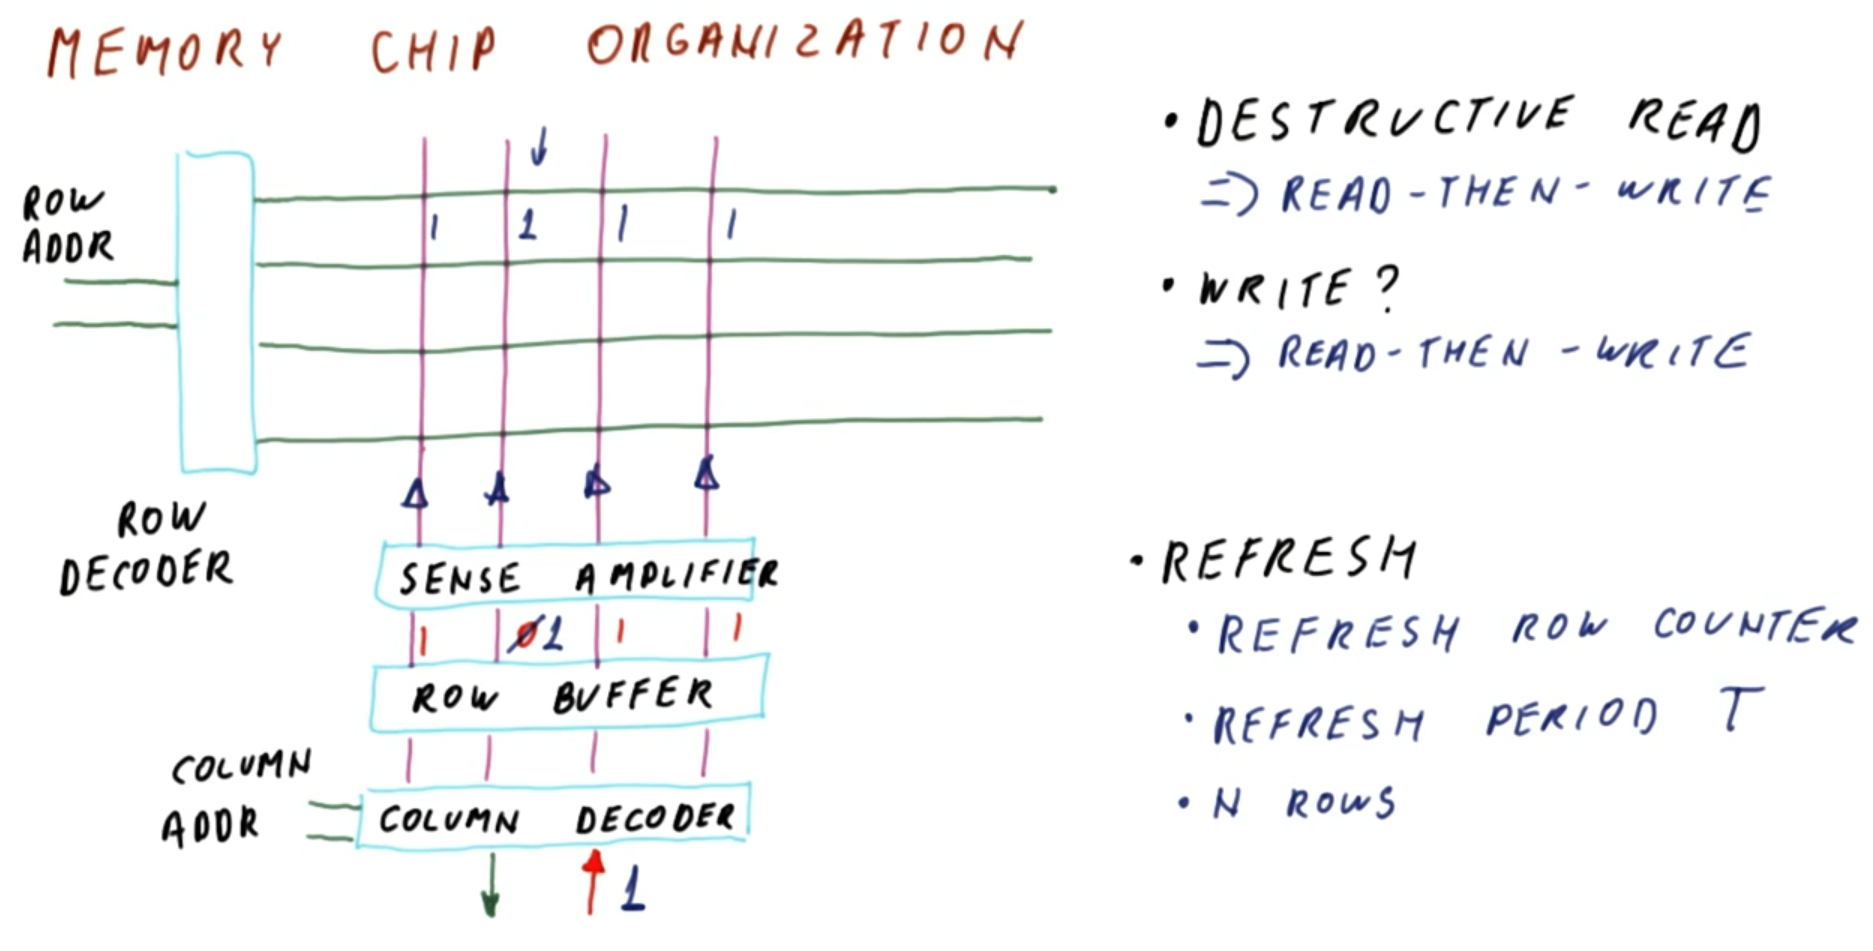 MEMORY CHIP ORGANIZATION
ROW
ADDR
1 1 1 1
ROW
DECODER
SENSE AMPLIFIER
1 0 1 1 1
ROW BUFFER
COLUMN
ADDR
COLUMN DECODER
1
• DESTRUCTIVE READ
=> READ-THEN-WRITE
• WRITE?
=> READ-THEN-WRITE
• REFRESH
• REFRESH ROW COUNTER
• REFRESH PERIOD T
• N ROWS